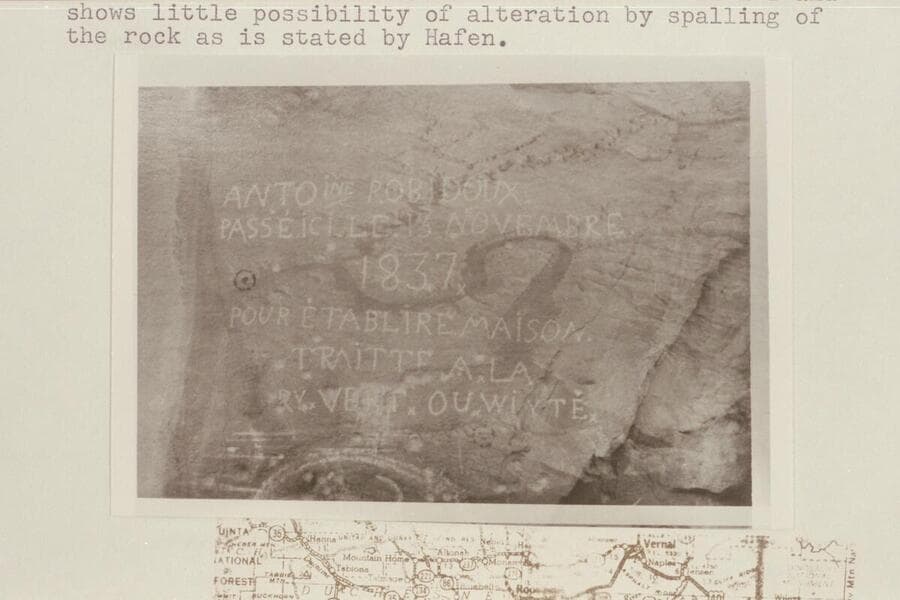 shows little possibility of alteration by spalling of
the rock as is stated by Hafen.
ANTOINE ROBIDOUX
PASSÉ ICI LE 13 NOVEMBRE
1837
POUR ÉTABLIRE MAISON
TRAITTE A LA
RV. VERT. OU WIYTÉ
UINTA
NATIONAL
FOREST
35
Hanna
Mountain Home
Tabiona
Talmage
Altonah
Bluebell
DUCHESNE
Vernal
Naples
Jensen
40